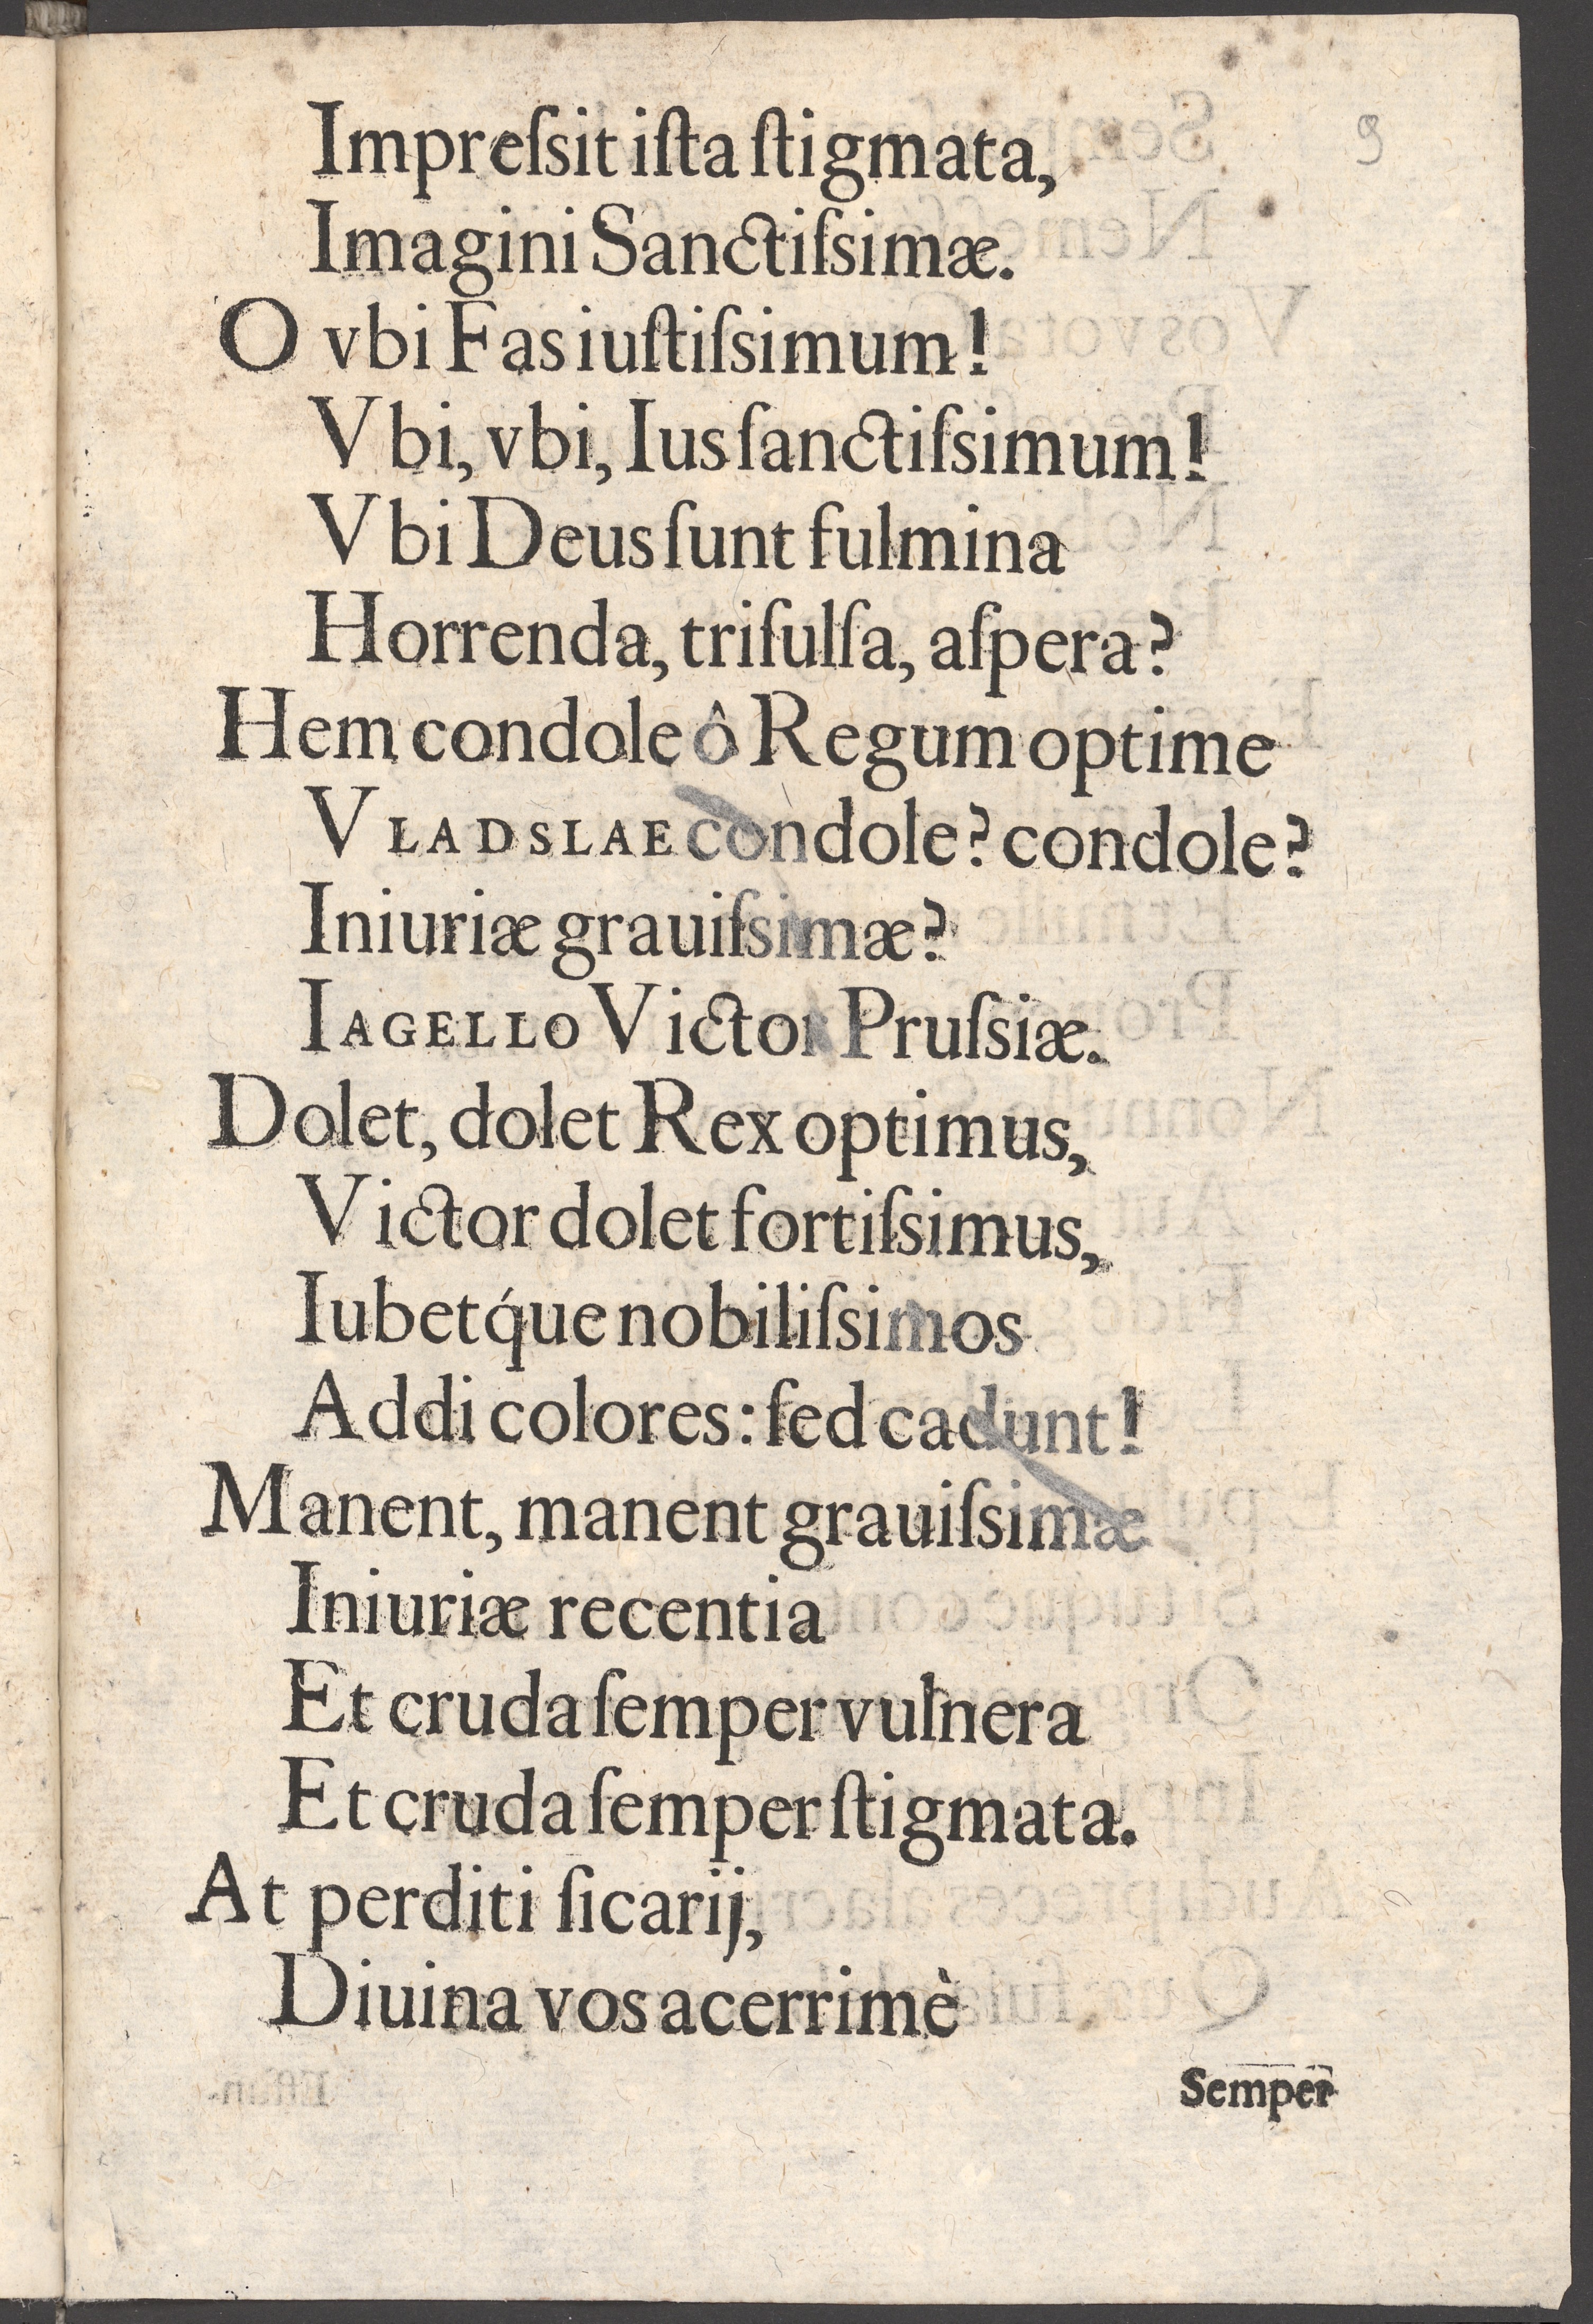 9
Impreſsit iſta ſtigmata,
Imagini Sanctiſsimæ.
O vbi Fas iuſtiſsimum!
Vbi, vbi, Ius ſanctiſsimum!
Vbi Deus ſunt fulmina
Horrenda, triſulſa, aſpera?
Hem condole ô Regum optime
VŁADSLAE condole? condole?
Iniuriæ grauiſsimæ?
IAGELLO Victor Pruſsiæ.
Dolet, dolet Rex optimus,
Victor dolet fortiſsimus,
Iubetq́ue nobiliſsimos
Addi colores: ſed cadunt!
Manent, manent grauiſsimæ
Iniuriæ recentia
Et cruda ſemper vulnera
Et cruda ſemper ſtigmata.
At perditi ſicarij,
Diuina vos acerrimè
Semper